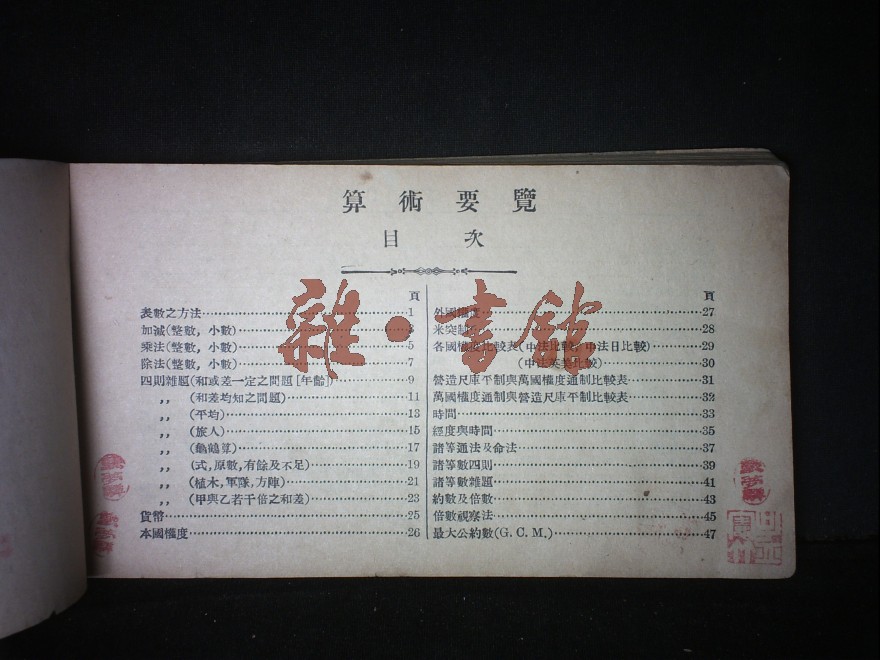 算術要覽
目次
頁
表數之方法 1
加減(整數, 小數) 3
乘法(整數, 小數) 5
除法(整數, 小數) 7
四則雜題(和或差一定之問題[年齡]) 9
,, (和差均知之問題) 11
,, (平均) 13
,, (旅人) 15
,, (龜鶴算) 17
,, (式, 原數, 有餘及不足) 19
,, (植木, 軍隊, 方陣) 21
,, (甲與乙若干倍之和差) 23
貨幣 25
本國權度 26
頁
外國權度 27
米突制 28
各國權度比較表(中法比較, 中法日比較) 29
(中法英美比較) 30
營造尺庫平制與萬國權度通制比較表 31
萬國權度通制與營造尺庫平制比較表 32
時間 33
經度與時間 35
諸等通法及命法 37
諸等數四則 39
諸等數雜題 41
約數及倍數 43
倍數視察法 45
最大公約數(G. C. M.) 47
雜·書館